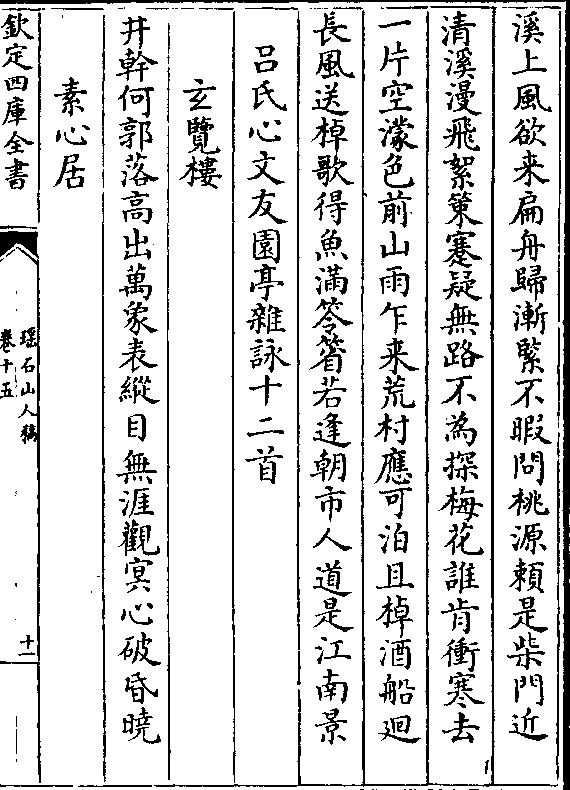 溪上風欲来扁舟歸漸緊不暇問桃源頼是柴門近
清溪漫飛絮策蹇疑無路不為探梅花誰肯衝寒去
一片空濛色前山雨乍来荒村應可泊且棹酒船廻
長風送棹歌得魚滿笭箵若逢朝市人道是江南景
呂氏心文友園亭雜詠十二首
玄覽樓
井幹何郭落高出萬象表縱目無涯觀㝠心破昏曉
素心居
欽定四庫全書
瑶石山人稿
卷十五
十